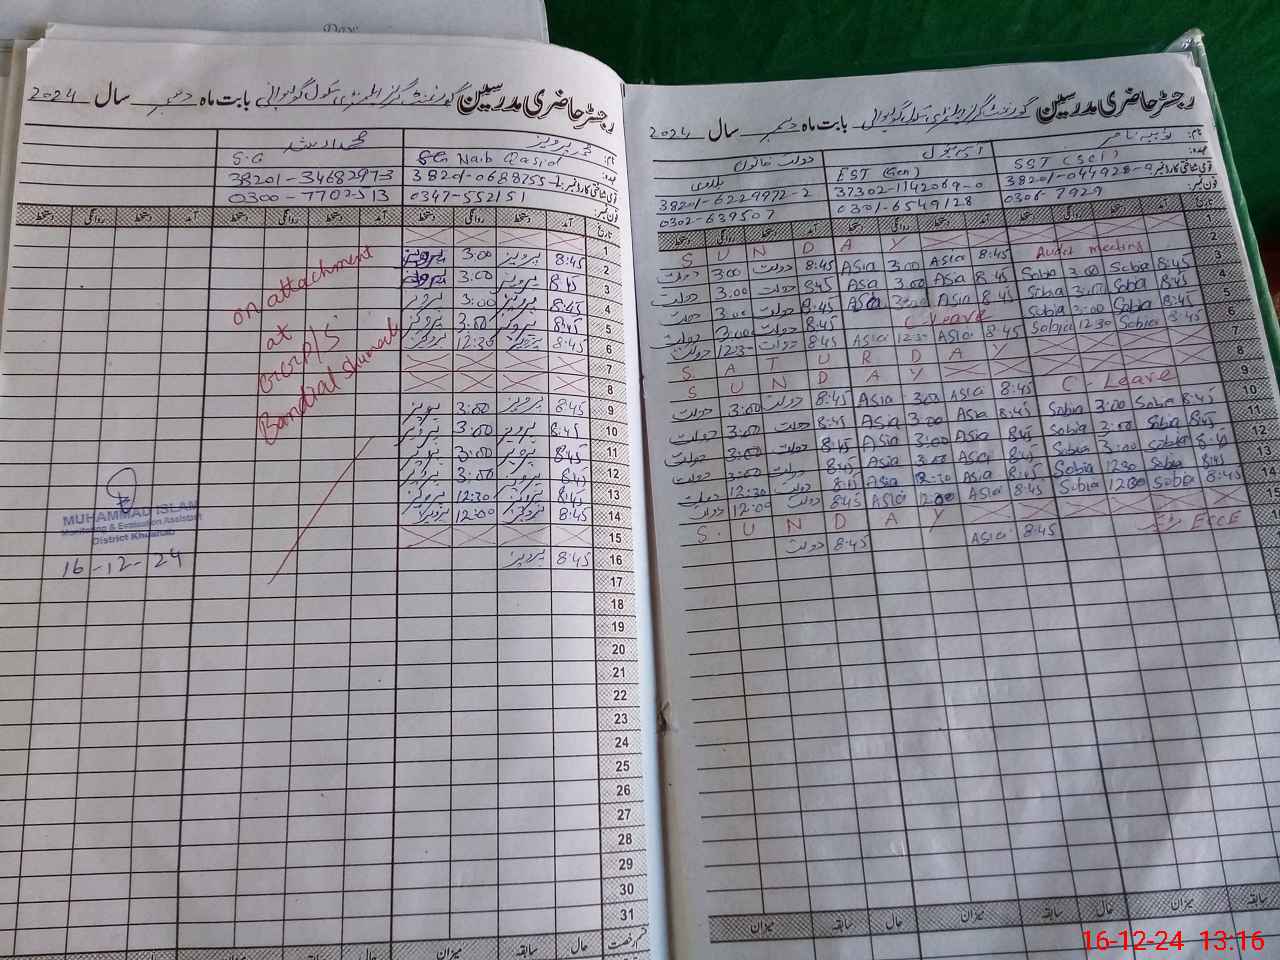 رجسٹر حاضری مدرسین گورنمنٹ گرلز ایلیمنٹری سکول گولیوالی بابت ماہ دسمبر سال 2024
نام: محمد پرویز
عہدہ: Naib Qasid S.G
قومی شناختی کارڈ نمبر: 38201-34682973
فون نمبر: 0347-552151 0300-7702513
تاریخ آمد دستخط روانگی دستخط آمد دستخط روانگی دستخط آمد دستخط روانگی دستخط
1
2 8:45 پرویز 3:00 پرویز
3 8:45 پرویز 3:00 پرویز
4 8:45 پرویز 3:00 پرویز
5 8:45 پرویز 3:00 پرویز
6 8:45 پرویز 12:30 پرویز
7
8
9 8:45 پرویز 3:00 پرویز
10 8:45 پرویز 3:00 پرویز
11 8:45 پرویز 3:00 پرویز
12 8:45 پرویز 3:00 پرویز
13 8:45 پرویز 12:30 پرویز
14 8:45 پرویز 12:00 پرویز
15
16 8:45 پرویز
17
18
19
20
21
22
23
24
25
26
27
28
29
30
31
قسم رخصت حال سابقہ میزان
on attachment
at
Bandial Shumali
MUHAMMAD ISLAM
Monitoring & Evaluation Assistant
District Khushab
16-12-24
رجسٹر حاضری مدرسین گورنمنٹ گرلز ایلیمنٹری سکول گولیوالی بابت ماہ دسمبر سال 2024
نام: دولت خاتون
عہدہ: SST (Sci) EST (Gen)
قومی شناختی کارڈ نمبر: 37302-1142069-0 38201-6229972-2
فون نمبر: 0306-7929 0301-6549128 0302-639507
S U N D A Y
Audit meeting 8:45 Asia 3:00 Asia 8:45 دولت 3:00 دولت
8:45 Sobia 3:00 Sobia 8:45 Asia 3:00 Asia 8:45 دولت 3:00 دولت
8:45 Sobia 3:00 Sobia 8:45 Asia 3:00 Asia 8:45 دولت 3:00 دولت
8:45 Sobia 3:00 Sobia C Leave 8:45 دولت 3:00 دولت
8:45 Sobia 12:30 Sobia 8:45 Asia 12:30 Asia 8:45 دولت 12:30 دولت
S A T U R D A Y
S U N D A Y
C-Leave 8:45 Asia 3:00 Asia 8:45 دولت 3:00 دولت
8:45 Sobia 3:00 Sobia 8:45 Asia 3:00 Asia 8:45 دولت 3:00 دولت
8:45 Sobia 3:00 Sobia 8:45 Asia 3:00 Asia 8:45 دولت 3:00 دولت
8:45 Sobia 3:00 Sobia 8:45 Asia 3:00 Asia 8:45 دولت 3:00 دولت
8:45 Sobia 12:30 Sobia 8:45 Asia 12:30 Asia 8:45 دولت 12:30 دولت
8:45 Sobia 12:00 Sobia 8:45 Asia 12:00 Asia 8:45 دولت 12:00 دولت
S U N D A Y
ECCE 8:45 Asia 8:45 دولت
سابقہ میزان حال سابقہ میزان حال سابقہ میزان
16-12-24 13:16